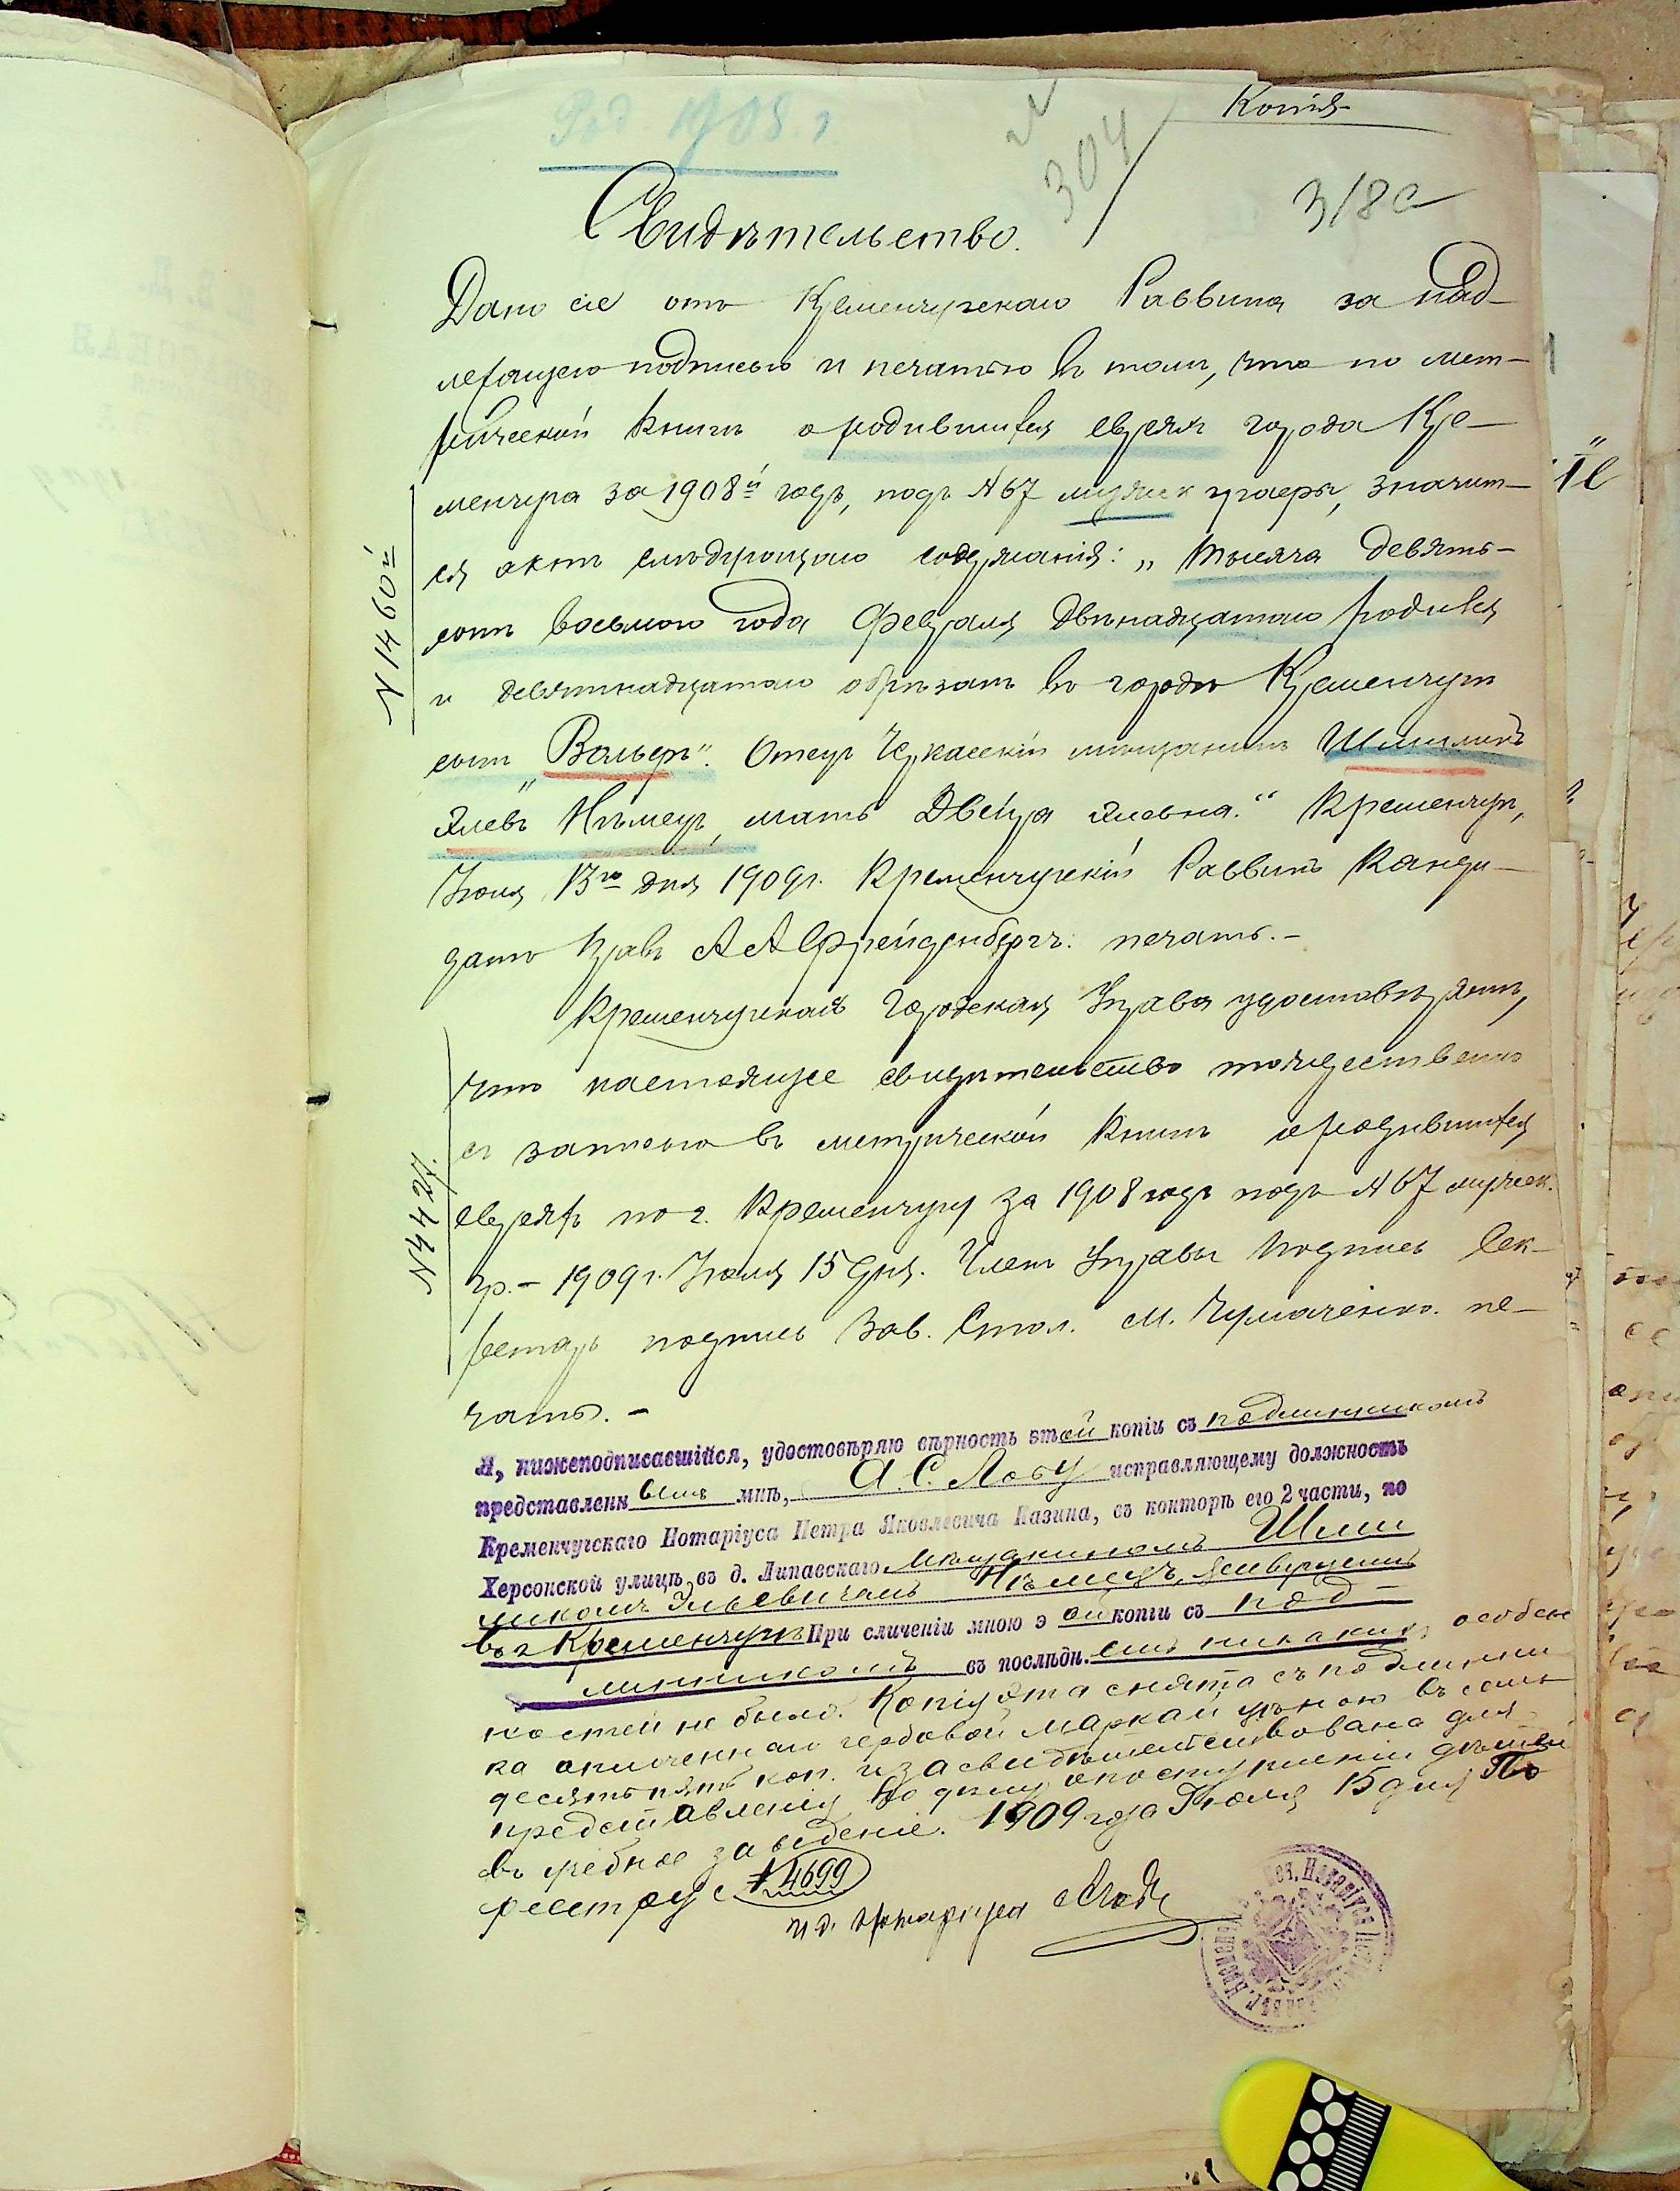 Копія
Род. 1908. г
304
318а
Свидѣтельство.
Дано сіе отъ Кременчугскаго Раввина за над-
лежащею подписью и печатью въ томъ, что по мет-
рической книгѣ о родившихся евреяхъ города Кре-
менчуга за 1908й годъ, подъ №67 мужск графы, значит-
ся актъ слѣдующаго содержанія: „Тысяча девять-
сотъ восьмого года Февраля двѣнадцатаго родился
и девятнадцатаго обрѣзанъ въ городѣ Кременчугѣ
сынъ „Вольфъ". Отецъ Черкасскій мѣщанинъ Шлиомъ
Нѣмецъ, мать Двейра." Кременчугъ,
Іюля 13го дня 1909г. Кременчугскій Раввинъ Канди-
датъ Правъ А А Фрейденбергъ. печать.-
№ 1460й
Кременчугская Городская Управа удостовѣряетъ,
что настоящее свидѣтельство тождественно
съ записью въ метрической книгѣ о родившихся
евреяхъ по г. Кременчугу за 1908 годъ подъ №67 мужск.
гр.- 1909г. Іюля 15 дня. Членъ Управы подпись Сек-
ретарь подпись Зав. Стол. М. Чумаченко. пе-
чать.-
№ 4427.
Я, нижеподписавшійся, удостовѣряю вѣрность этой копіи съ подлинникомъ
представленнымъ мнѣ, А. С. Лову исправляющему должность
Кременчугскаго Нотаріуса Петра Яковлевича Казина, въ конторѣ его 2 части, по
Херсонской улицѣ, въ д. Липавскаго мѣщаниномъ
Ильевичемъ Нѣмецъ, живущимъ
въ г. Кременчугѣ При сличеніи мною этой копіи съ под-
линникомъ въ послѣдн.емъ никакихъ особен
ностей не было. Копія эта снята съ подлинни
ка оплоченнаго гербовой маркой цѣною въ семь
десятъ пять коп. и засвидѣтельствована для
представленія по дѣлу о поступленіи дѣтей
въ учебное заведеніе. 1909 года Іюля 15 дня По
реестру № 4699
И д. Нотаріуса